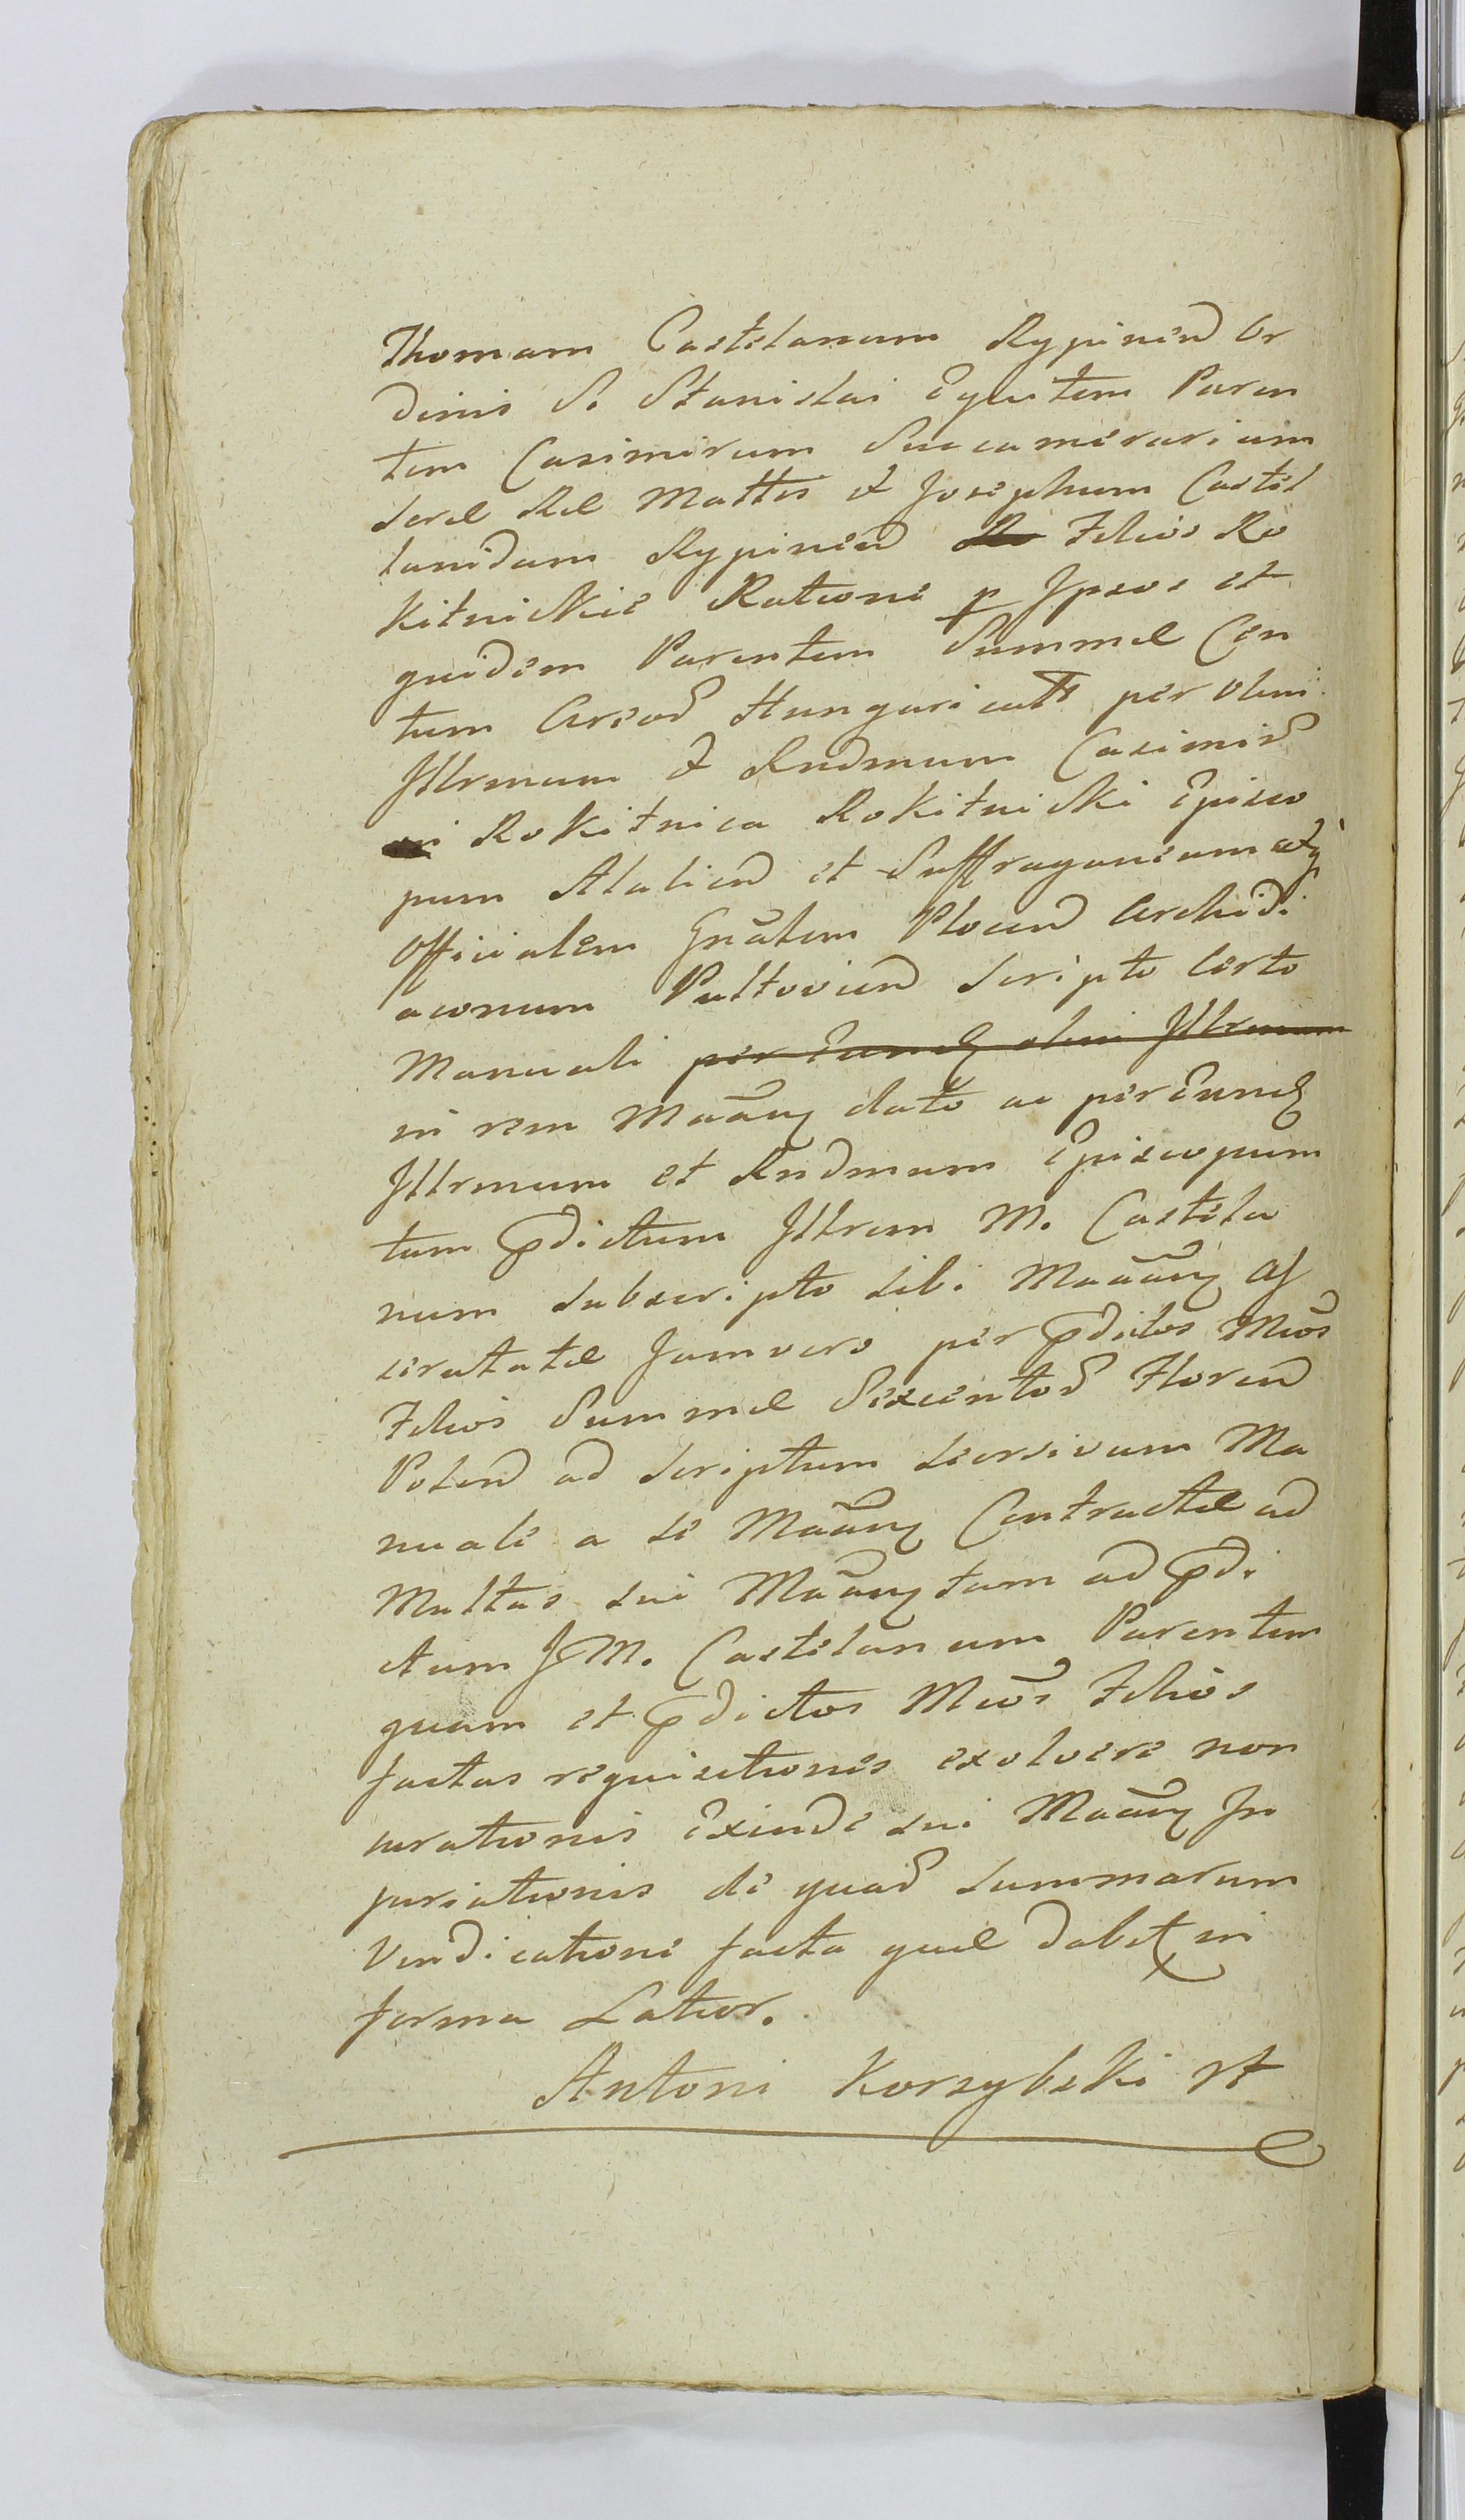 Thomam Castelanum Rypinen Or
dinis S. Stanislai Equitem Paren
tem Casimirum Succamerarium
Sere Re Mattis & Josephum Castel
lanidam Rypinen Filios Ro
kitnickie Ratione p Ipsos et
quidem Parentem Summe Cen
tum Areos Hungaricatt per olim
Illrmum & Rndmum Casimir
Rokitnica Rokitnicki Episco
pum Alalien et Suffraganeum atq
Officialem Gnalem Plocen Archidi
aconum Pultovien Scripto Certo
Manuali per Eund olim Illrmum
in rem Maaug dato ac per Eund
Illrmum et Rndmum Episcopum
tum pdictum Illrem M. Castela
num subscripto sibi Maaug As
securatate Jamvero per pdictos Mcos
Filios Summe Sexcentos Floren
Polen ad Scriptum seorsivum Ma
nuale a se Maaug Contracte ad
Multas sui Maaug tam ad pdi
ctum JM. Castelanum Parentem
quam et pdictos Mcos Filios
factas requisitiones exolvere non
curationis Exinde sui Maaug In
juriationis de quas summarum
Vindicatione facta que dabit in
forma Latior.
Antoni Korzybski